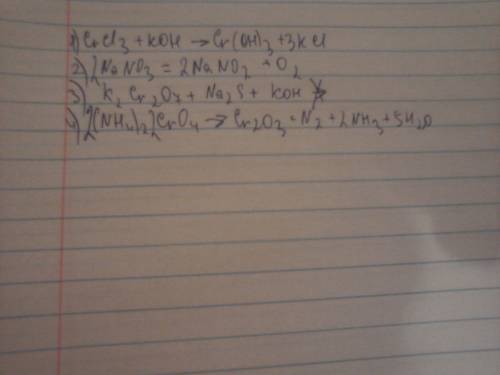 1) CrCl3 + KOH → Cr(OH)3 + 3KCl
2) 2NaNO3 = 2NaNO2 + O2
3) K2Cr2O7 + Na2S + KOH
4) 2(NH4)2CrO4 → Cr2O3 + N2 + 2NH3 + 5H2O